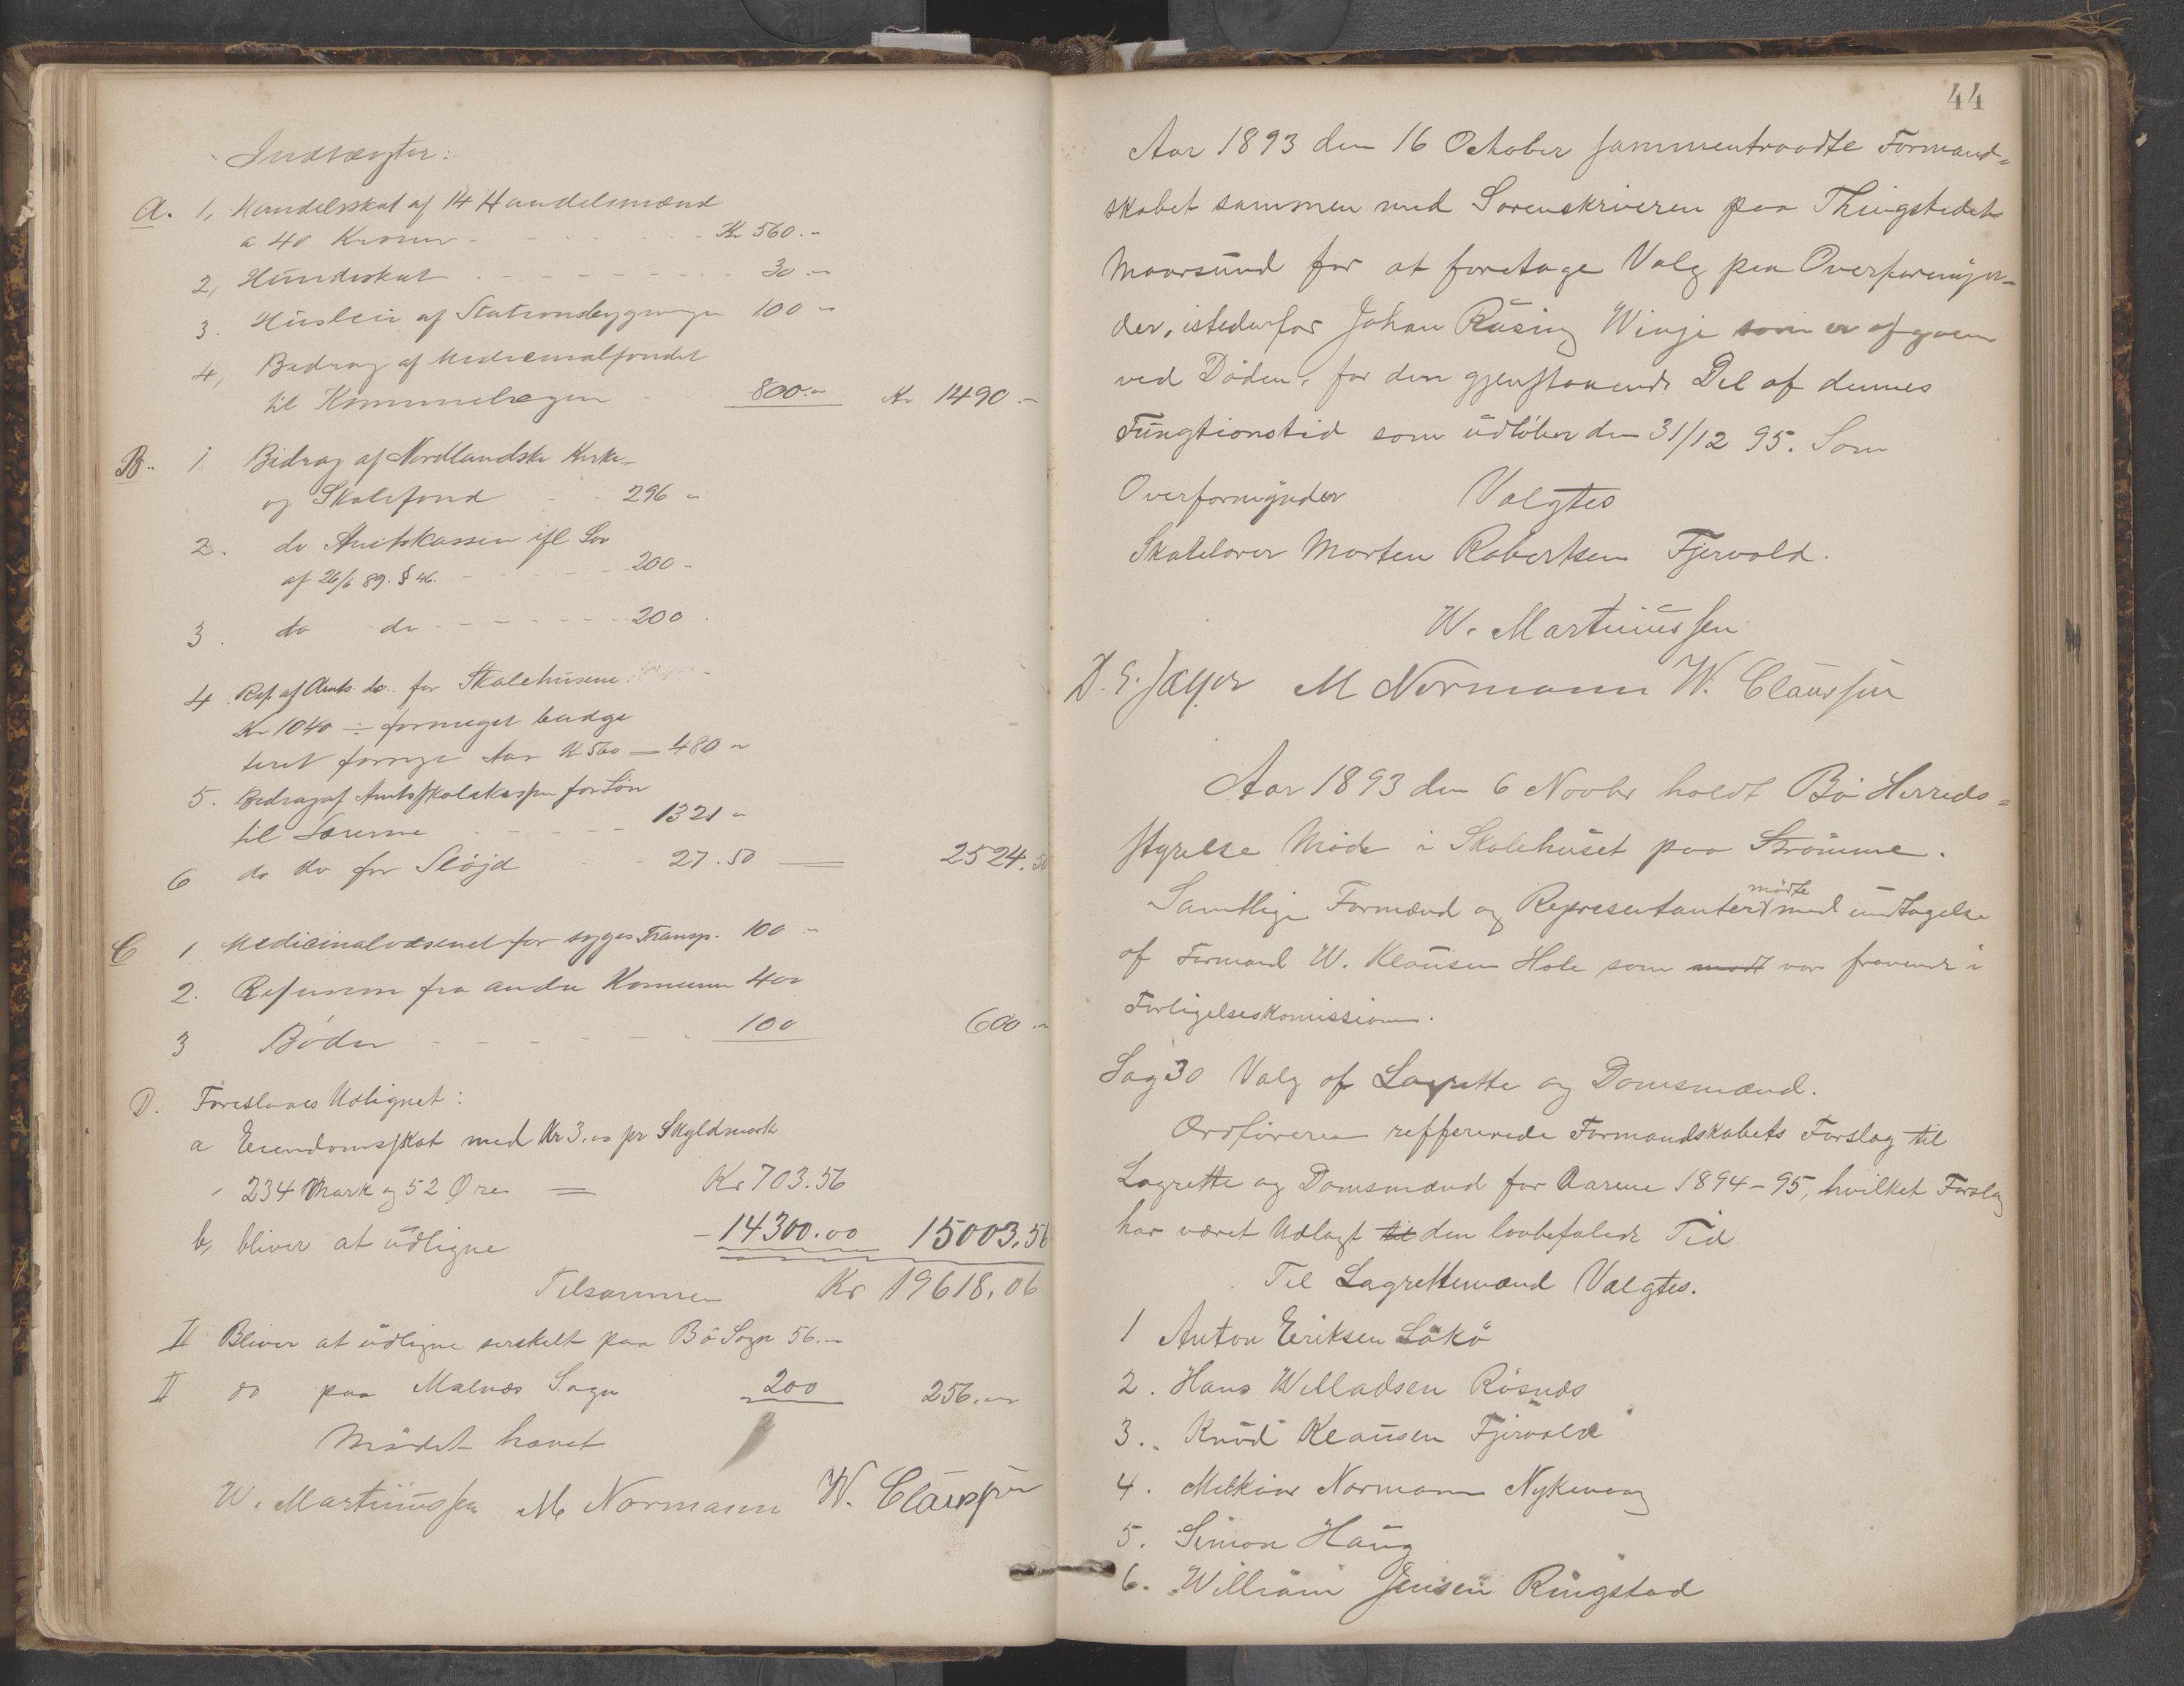 Indtægter:
A. 1, Handelsskat af 14 Handelsmænd
a 40 Kroner - - - - Kr 560.-
2, Hundeskat - - - - - - - 30.-
3. Husleie af Stationsbygningen 100 -
4, Bidrag af Medicinalfondet
til Kommunelægen - 800.- Kr 1490.-
B. 1 Bidrag af Nordlandske Kirke-
og Skolefond - - 296 -
2. do Amtskassen ifl Lov
af 26/6 89. § 46. - - - - 200 -
3. do do - - - - - - - 200.
4. Ref. af Amts. do. for Skolehusene
Kr 1040 ÷ formeget budge
teret forrige Aar Kr 560 = 480 -
5. Bidrag af Amtsskolekassen for Løn
til Lærerne - - - - 1321 -
6 do do for Sløjd - - 27.50 = 2524.50
C 1 Medicinalvæsenet for syges Transp. 100 -
2. Refusion fra andre Kommuner 400
3 Bøder - - - - - - . 100 600 -
D. Foreslaaes Udlignet:
a Eiendomsskat med Kr 3.00 pr Skyldmark
234 Mark og 52 Øre = Kr 703.56
b, bliver at udligne - 14300.00 15003,56
Tilsammen Kr 19618,06
II Bliver at udligne serskelt paa Bø Sogn 56.-
II do paa Malnæs Sogn 200 256.-
Mødet hævet
W. Martinussen M Normann W. Claussen
44
Aar 1893 den 16 October sammentraadte Formand=
skabet sammen med Sorenskriveren paa Thingstedet
Maarsund for at foretage Valg paa Overformyn-
der, istedenfor Johan Rasing Winje som er afgaaen
ved Døden, for den gjenstaaende Del af dennes
Fungtionstid som udløber den 31/12 95. Som
Overformynder Valgtes
Skolelærer Morten Robertsen Fjervold.
W. Martinussen
D. E. Jæger M Normann W. Claussen
Aar 1893 den 6 Novbr holdt Bø Herreds=
styrelse Møde i Skolehuset paa Strømme.
Samtlige Formænd og Representanter mødte med undtagelse
af Formand W. Klausen Hole som mødt var fraværende i
Forligelseskomission.
Sag 30 Valg af Lagrette og Domsmænd.
Ordføreren reffererede Formandskabets Forslag til
Lagrette og Domsmænd for Aarene 1894-95, hvilket Forslag
har været Udlagt til den lovbefalede Tid
Til Lagrettemænd Valgtes.
1 Anton Eriksen Løkø
2. Hans Willadsen Røsnes
3. Knud Klausen Fjervold
4. Melkior Normann Nykvaag
5. Simon Haug
6. William Jensen Ringstad